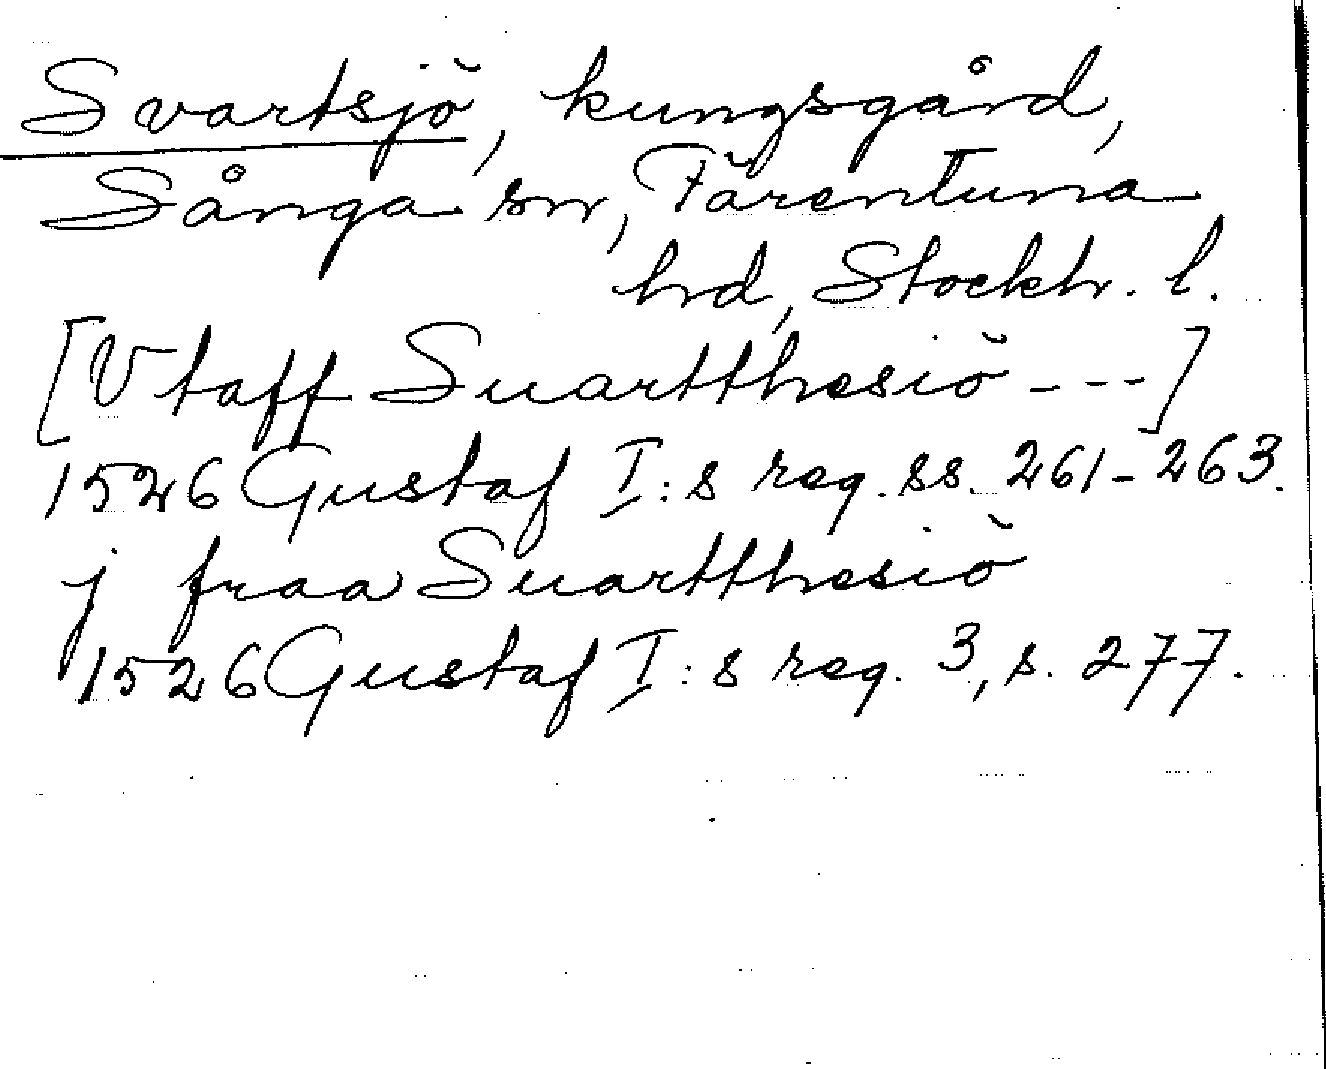 Svartsjö, kungsgård,
Sånga sn, Färentuna
hrd, Stockh. l.
[Vtaff Suartthesiö ---]
1526 Gustaf I:s reg. ss. 261-263.
j fraa Suartthesiö
1526 Gustaf I:s reg. 3, s. 277.